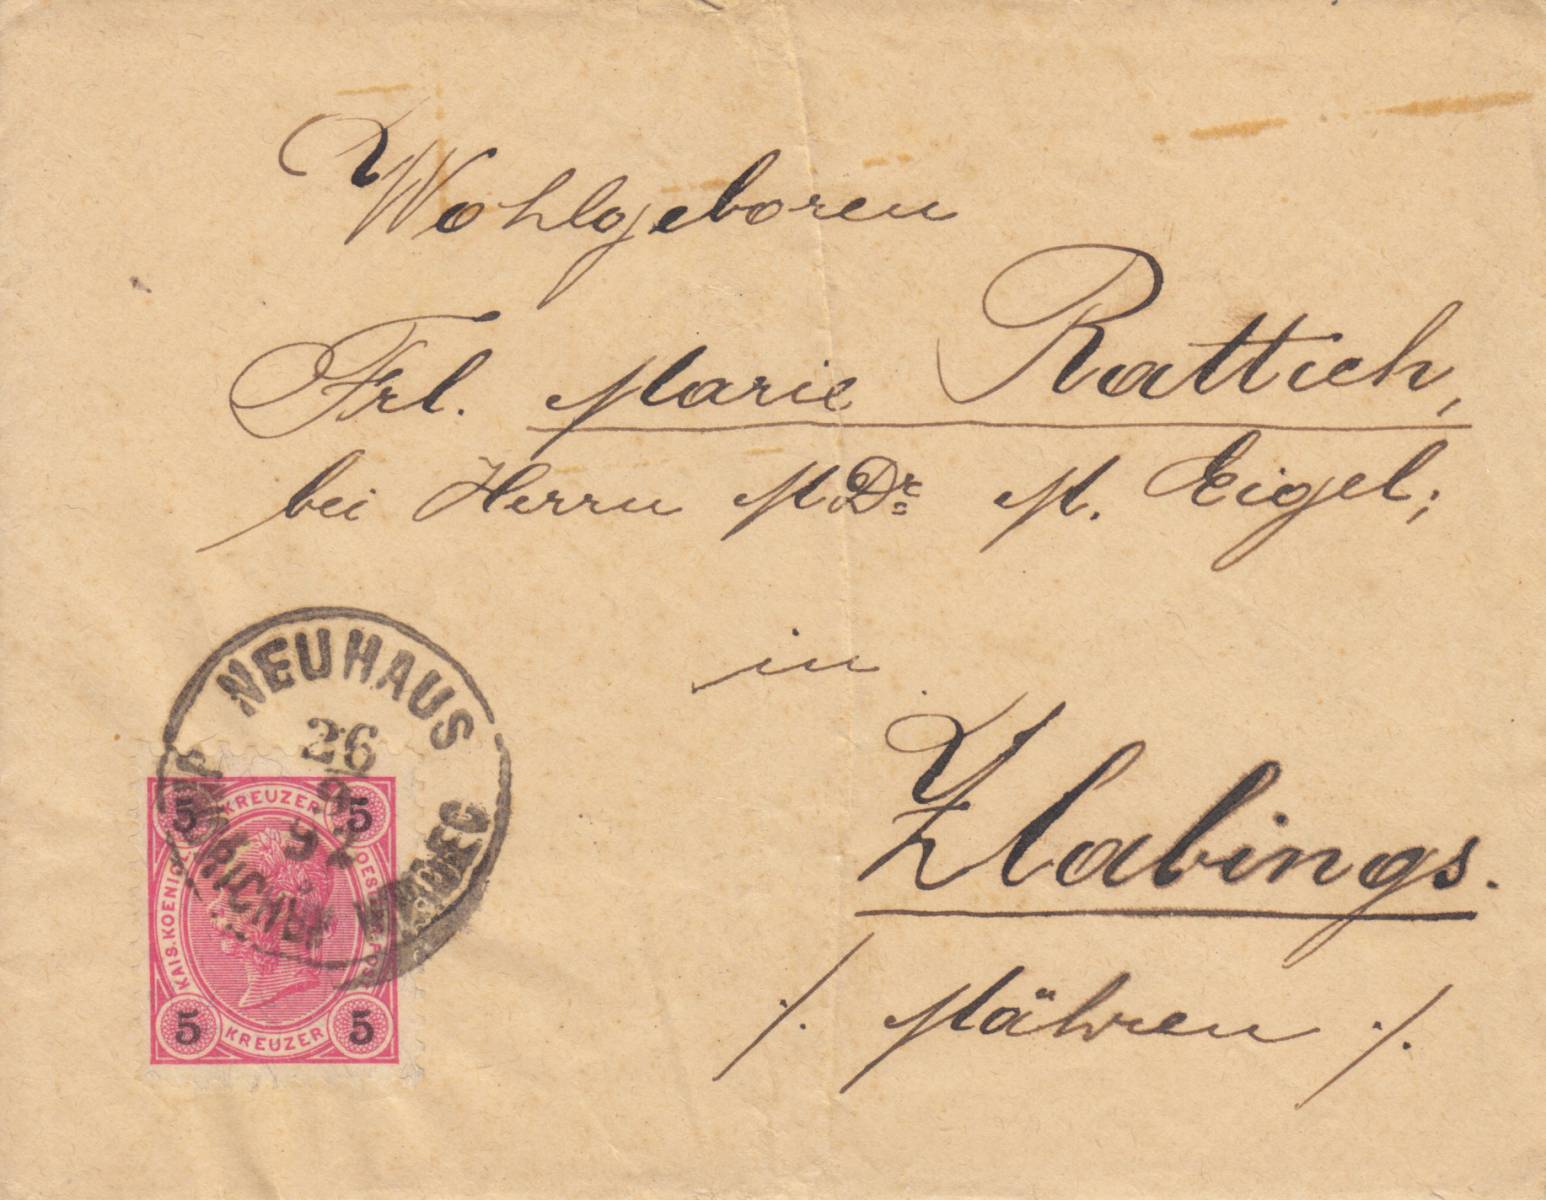 Wohlgeboren
Frl. Marie Rattich,
bei Herrn MDr. M. Eigel;
in
Zlabings.
/. Mähren ./.
NEUHAUS
26
92
JINDŘICHŮV HRADEC
5 KREUZER 5
KAIS. KOENIGL. OESTERR. POST
5 KREUZER 5